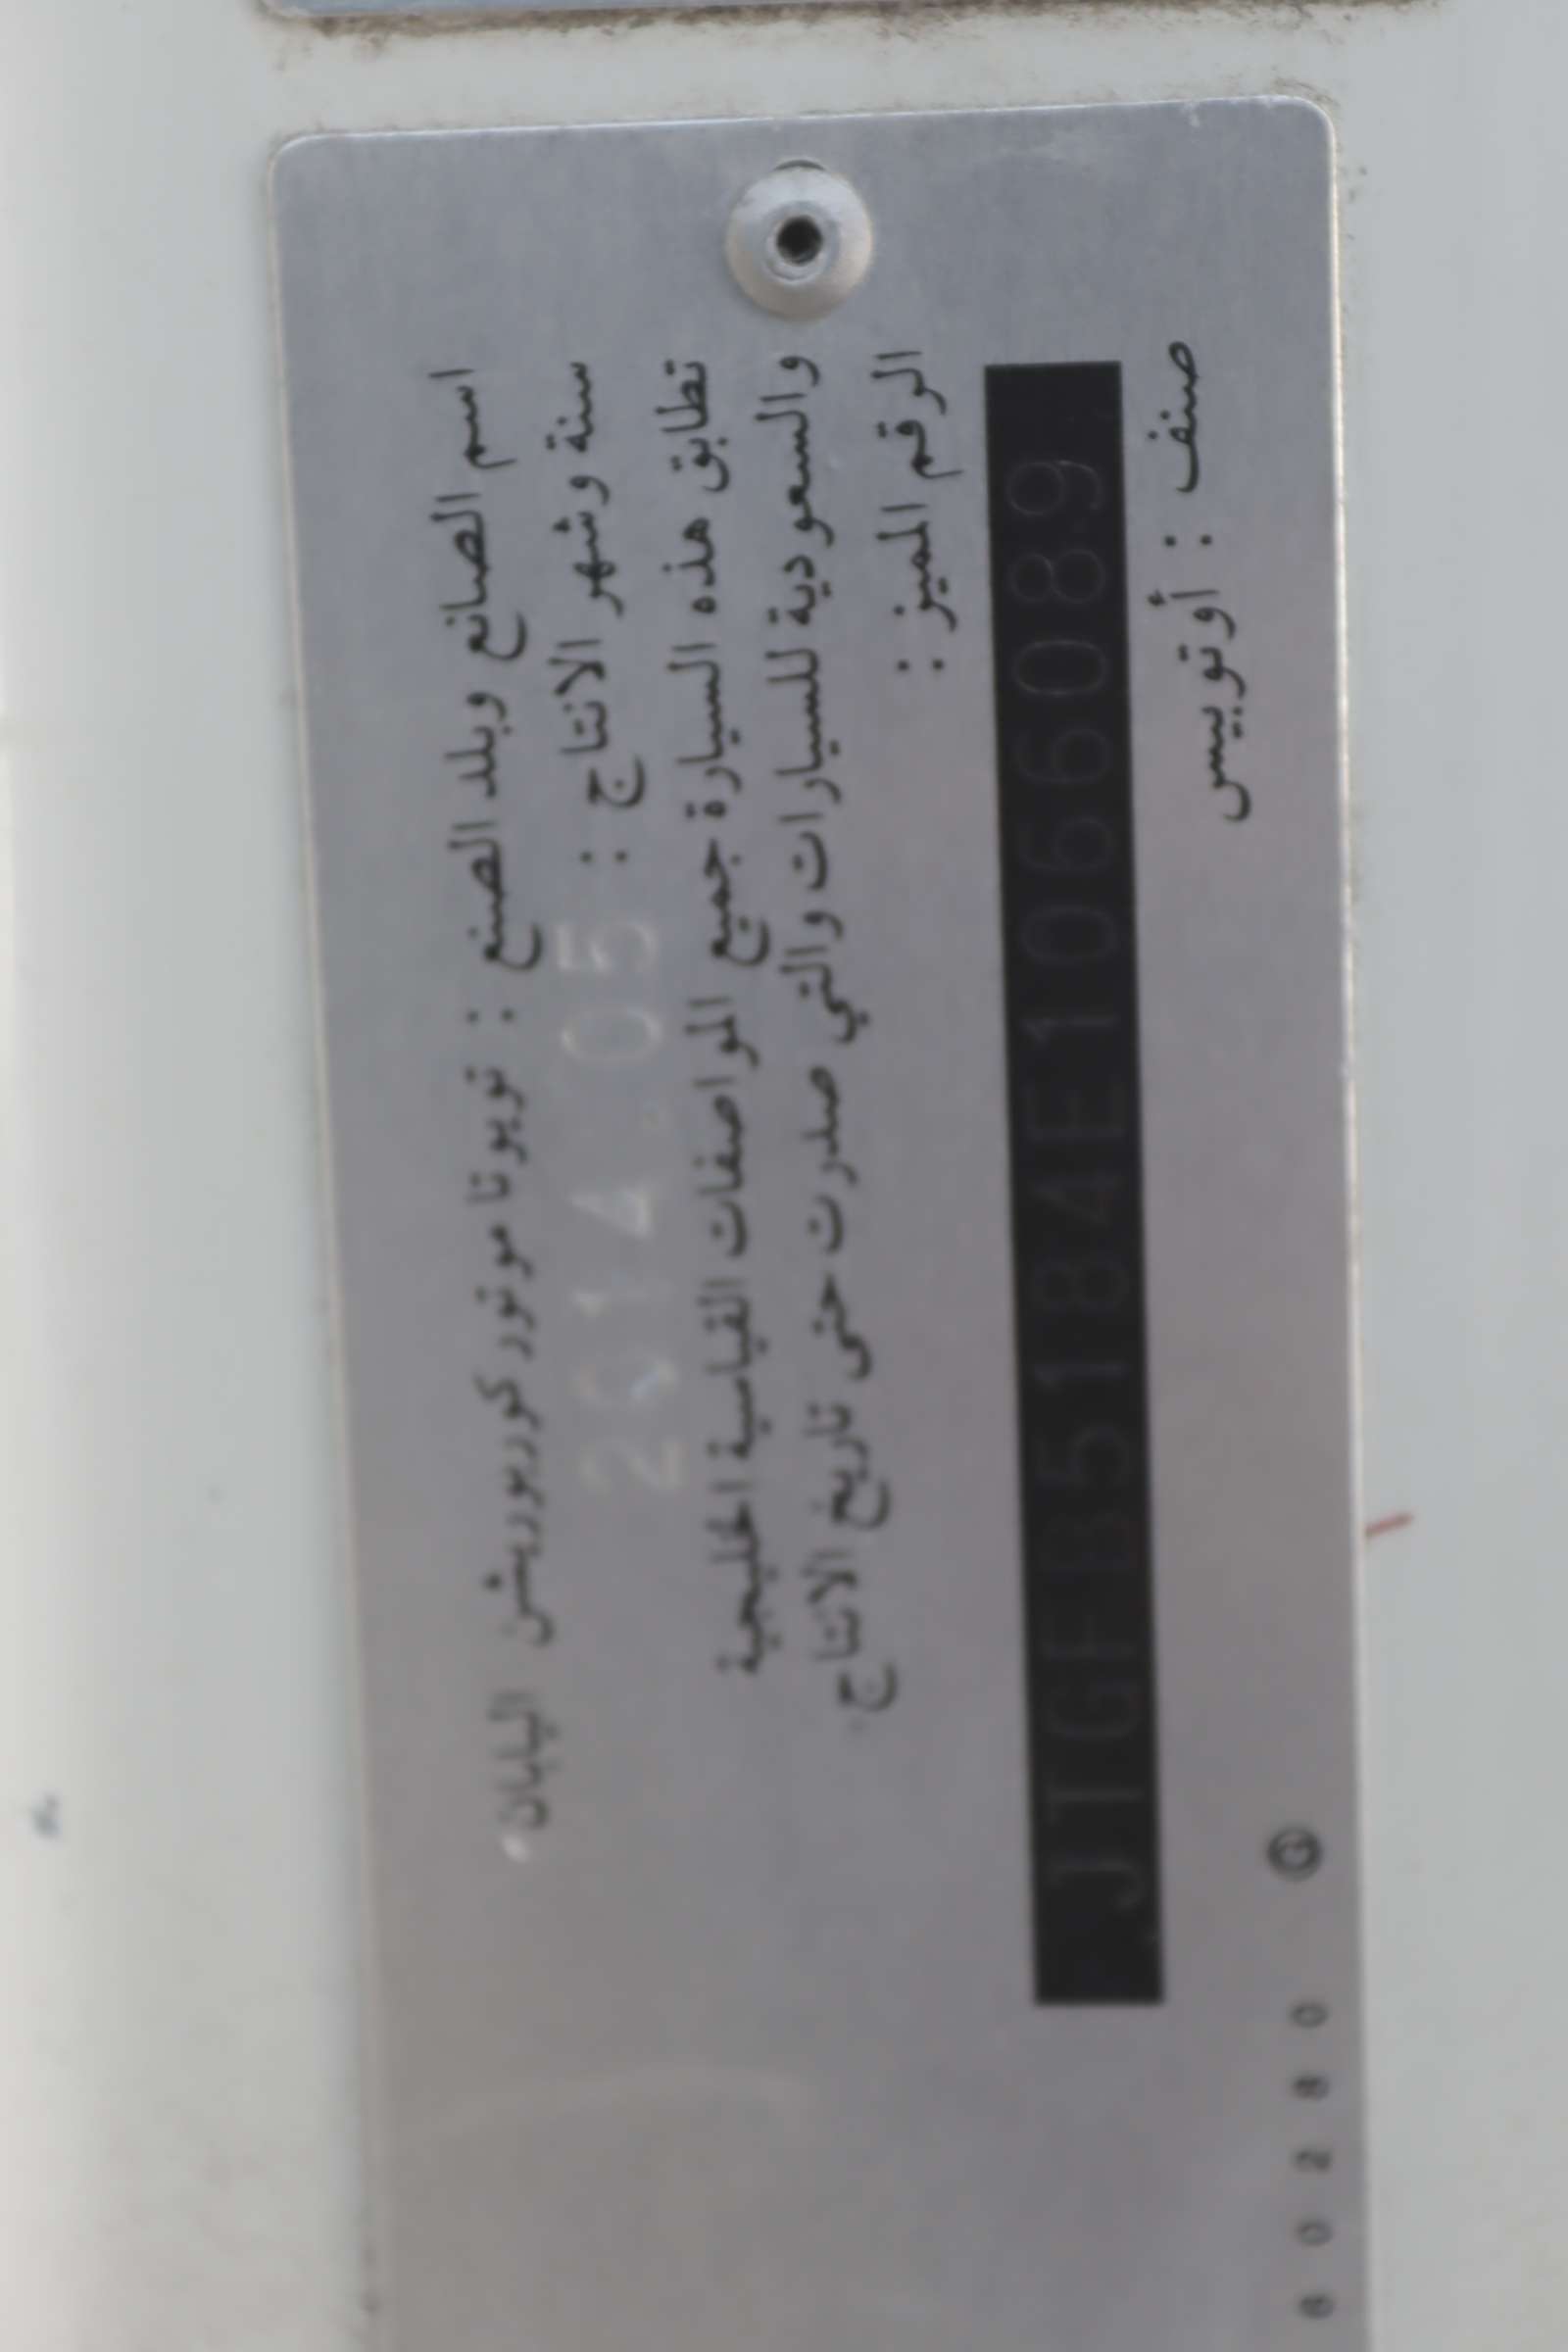 اسم الصانع وبلد الصنع : تويوتا موتور كوربوريشن اليابان
سنة وشهر الانتاج : 2014.05
تطابق هذه السيارة جميع المواصفات القياسية الخليجية
والسعودية للسيارات والتي صدرت حتى تاريخ الانتاج.
الرقم المميز :
JTGFB5184E1066089
صنف : أوتوبيس